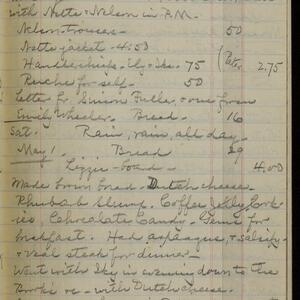 with Nette & Nelson in P.M.
Nelson trouses 50
Nette jacket - 4.50
Handkerchiefs - 75 2.75
for self - 50
Letter fr. Susan Fuller, & one from
Emily Wheeler. Bread - 16
Sat. Rain, rain, all day -
May 1. Bread 29
Lizzie - board - 4,00
Made brown bread - Dutch cheese -
Rhubarb Coffee Jelly, Cook-
ies, Chocolate Candy - Gems for
breakfast. Had asparagus, & salsify
& veal steak for dinner -
Went with Sky in evening down to the
- with Dutch cheese -